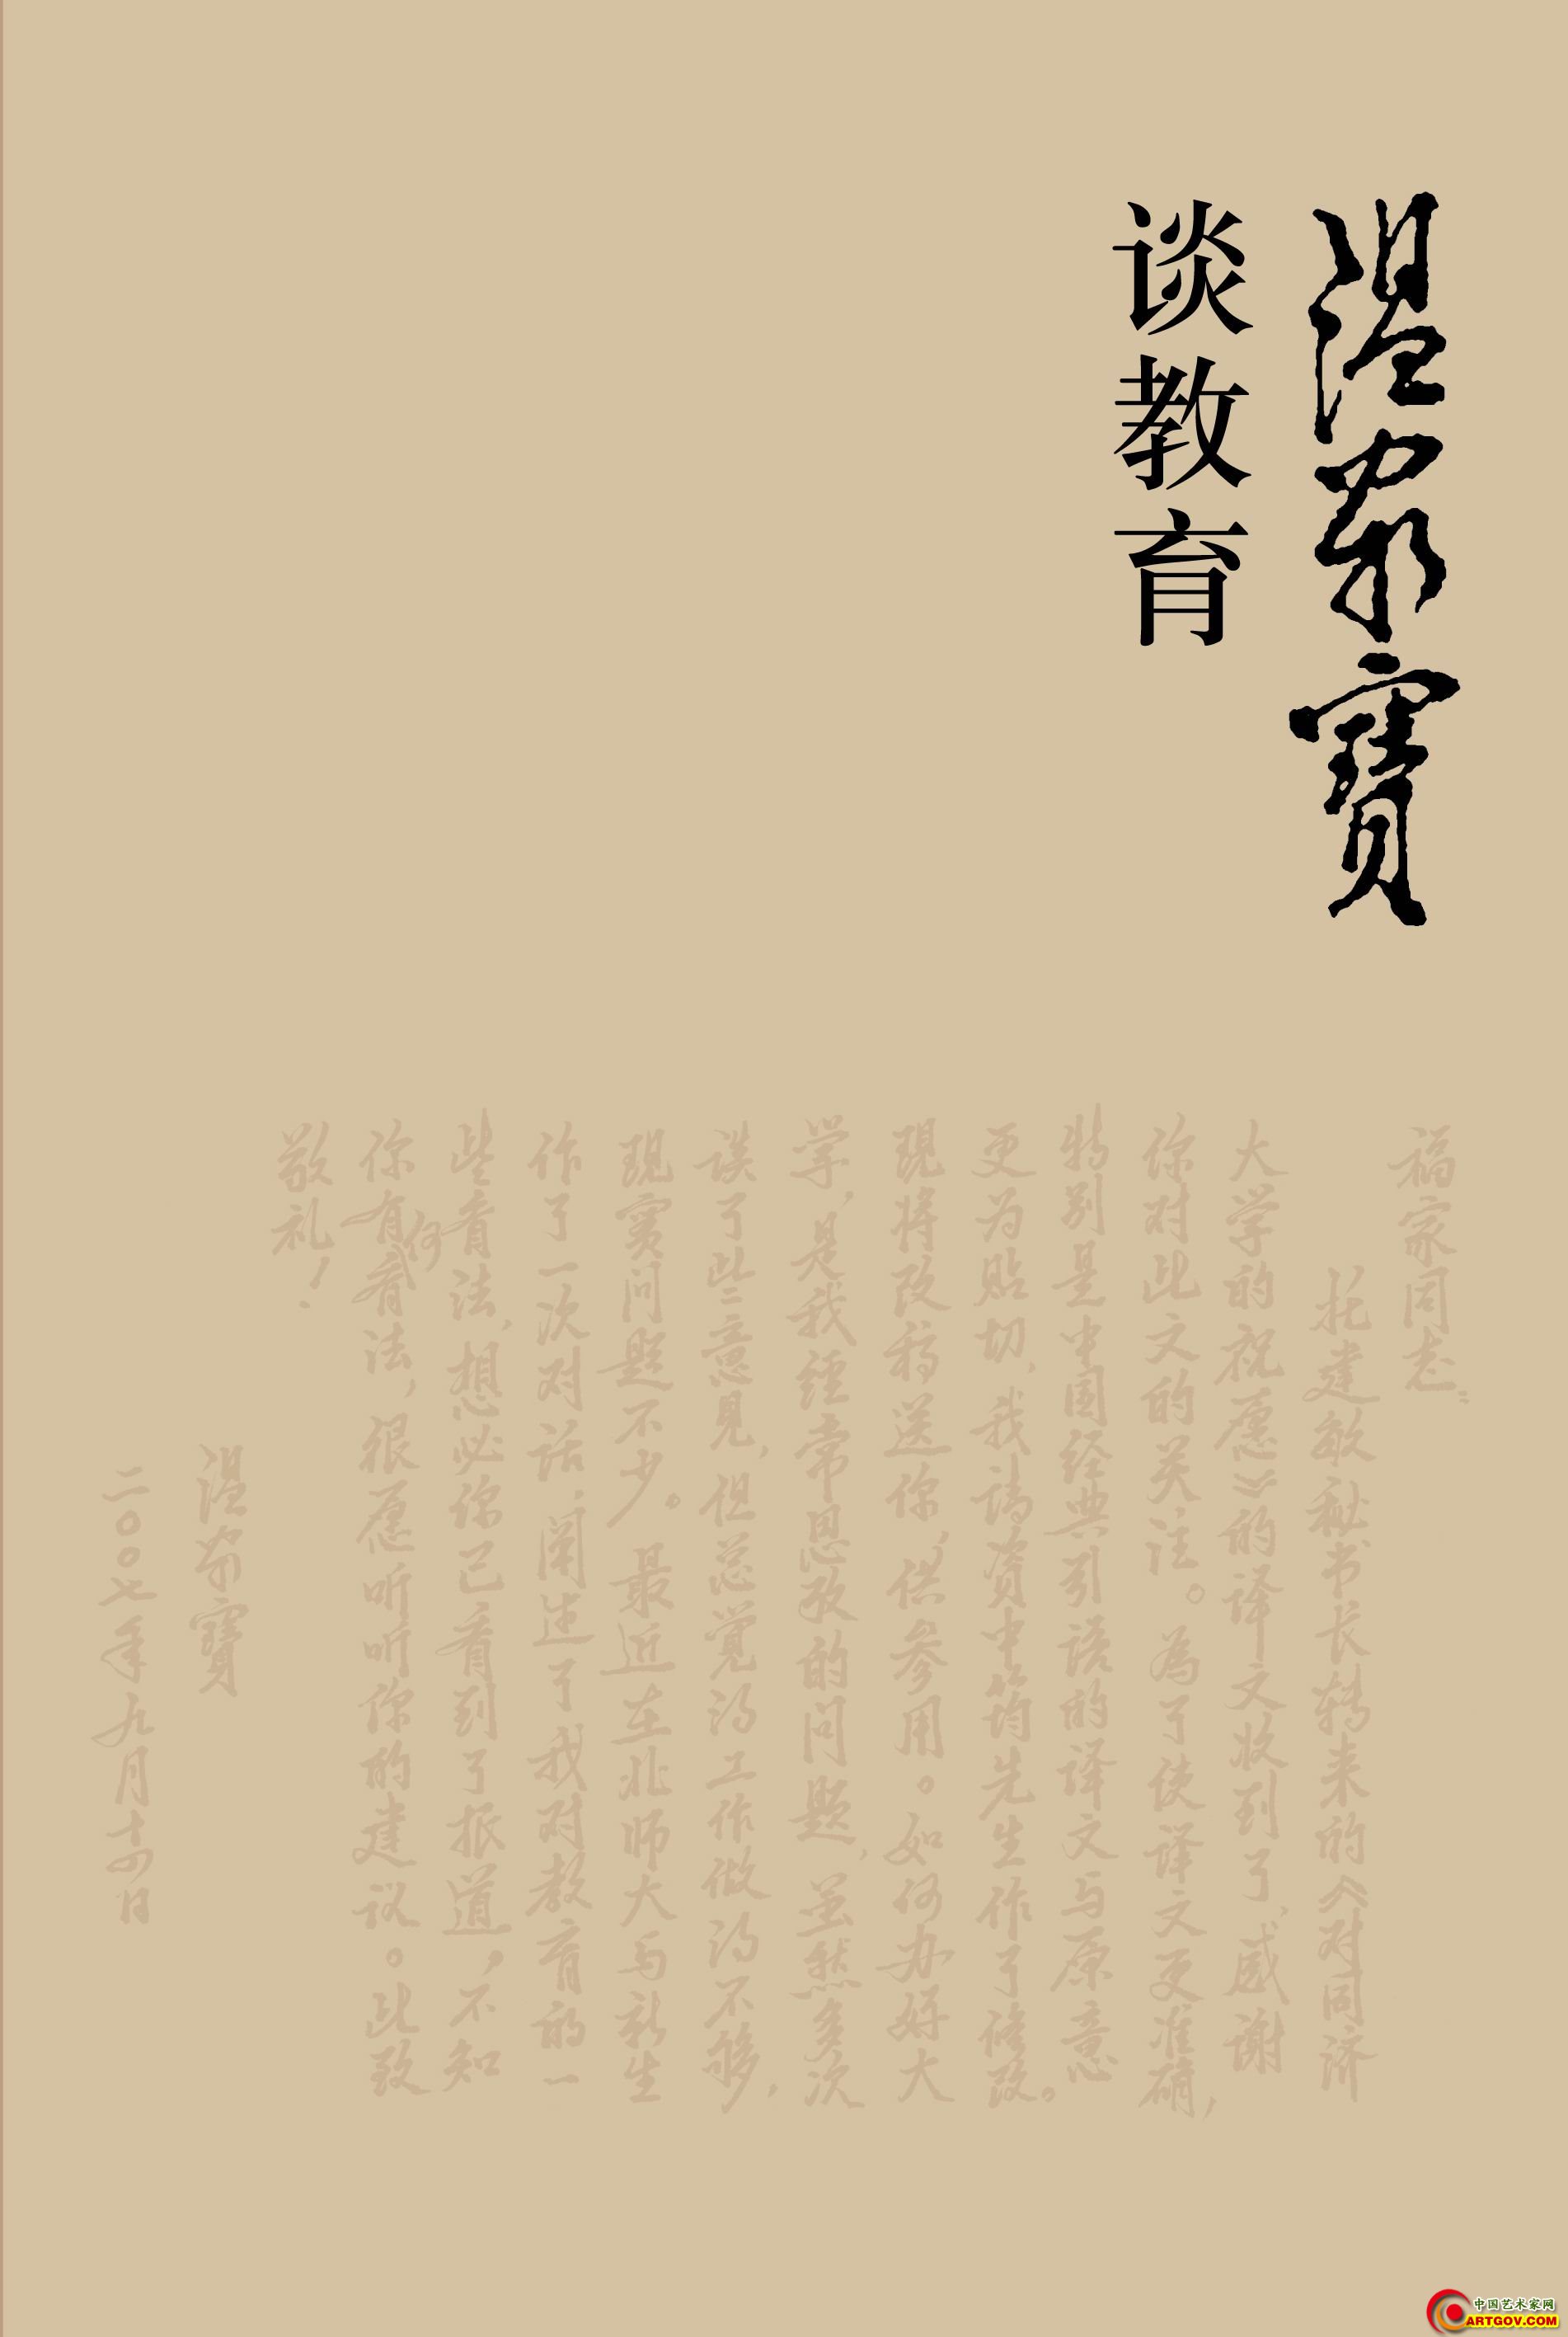 温家寳
谈教育
福家同志:
托建敏秘书长转来的《对同济
大学的祝愿》的译文收到了,感谢
你对此文的关注。为了使译文更准确,
特别是中国经典引语的译文与原意
更为贴切,我请资中筠先生作了修改。
现将改稿送你,供参用。如何办好大
学,是我经常思考的问题,虽然多次
谈了些意见,但总觉得工作做得不够,
现实问题不少。最近在北师大与新生
作了一次对话,阐述了我对教育的一
些看法,想必你已看到了报道,不知
你有何看法,很愿听听你的建议。此致
敬礼!
温家寳
二〇〇七年九月十四日
中国艺术家网
ARTGOV.COM